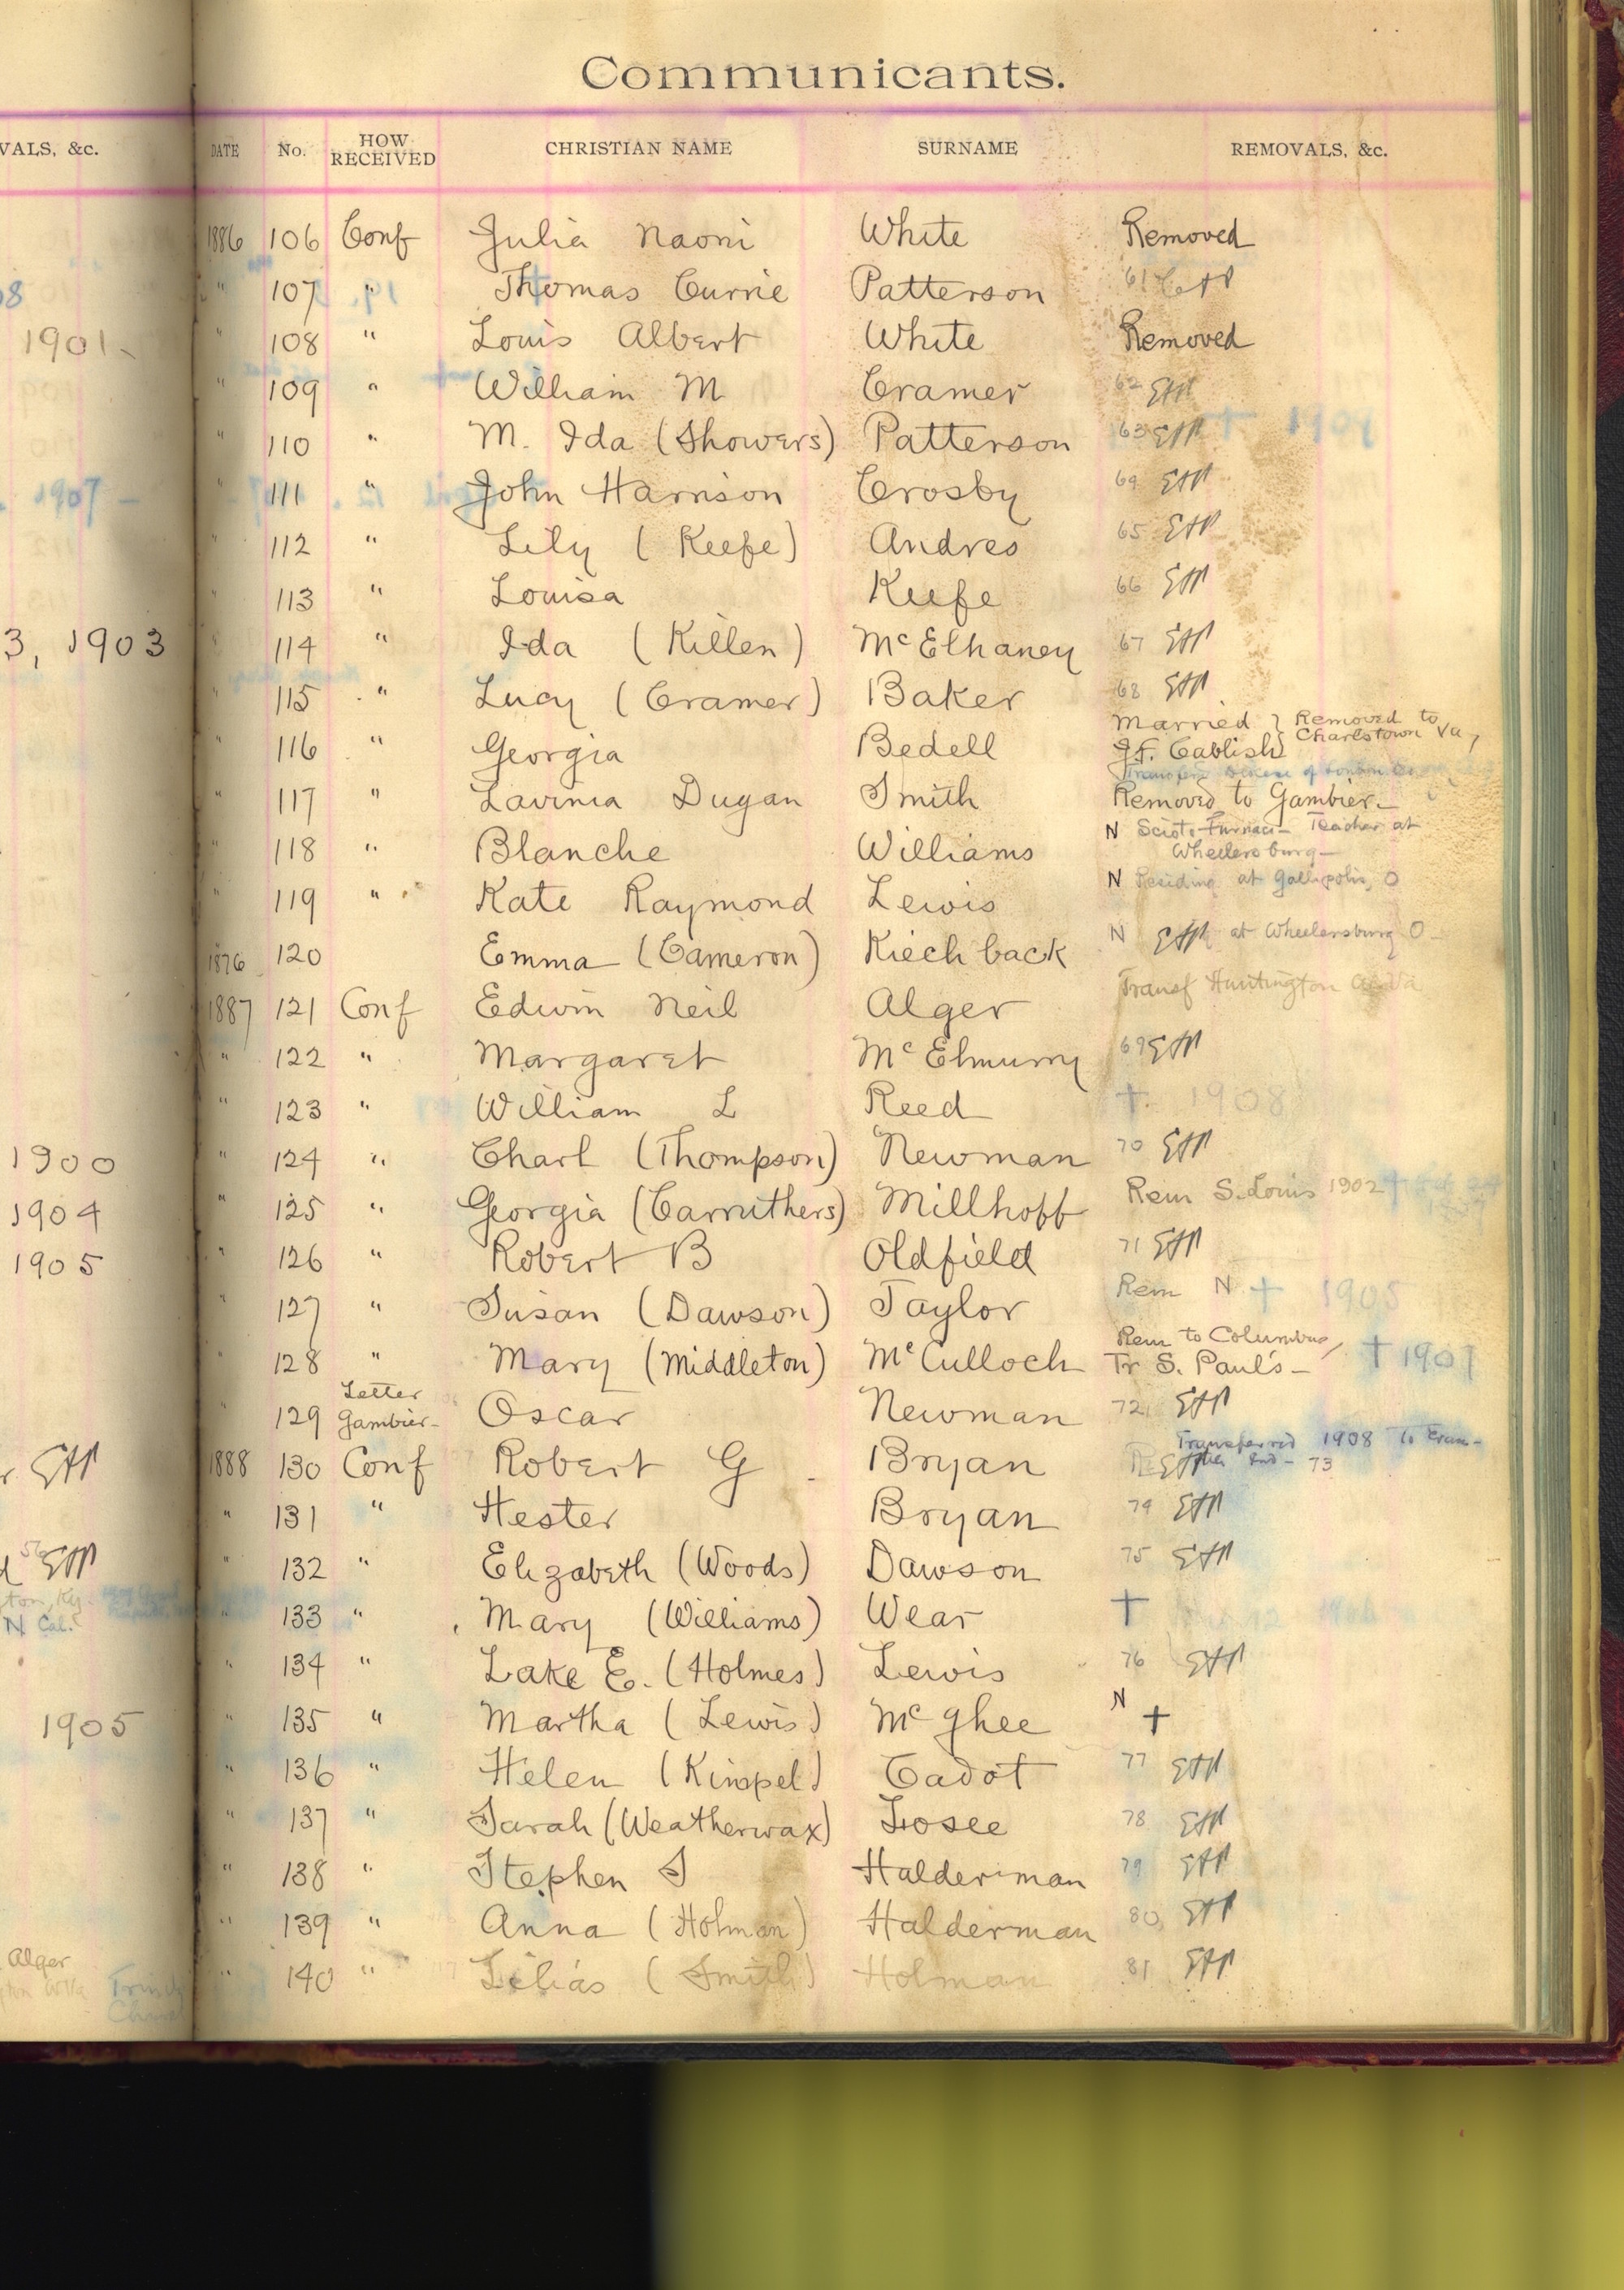 Communicants.
VALS, &c.
DATE No. HOW RECEIVED CHRISTIAN NAME SURNAME REMOVALS, &c.
1886 106 Conf Julia Naomi White Removed
" 107 " Thomas Currie Patterson 61
1901
" 108 " Louis Albert White Removed
" 109 " William M Cramer 62 EAP
" 110 " M. Ida (Showers) Patterson 63 EAP † 1909
1907 -
" 111 " John Harrison Crosby 64 EAP
" 112 " Lily (Keefe) Andres 65 EAP
" 113 " Louisa Keefe 66 EAP
3, 1903
" 114 " Ida (Killen) McElhaney 67 EAP
" 115 " Lucy (Cramer) Baker 68 EAP
" 116 " Georgia Bedell Married J.F. Cablish } Removed to Charlstown Va,
" 117 " Lavinia Dugan Smith Removed to Gambier-
" 118 " Blanche Williams N Scioto Furnace - Teacher at Wheelersburg -
" 119 " Kate Raymond Lewis N Residing at Gallipolis, O
1876 120 Emma (Cameron) Kiechback N EAP at Wheelersburg O-
1887 121 Conf Edwin Neil Alger Transf Huntington
" 122 " Margaret McElmurry 69 EAP
" 123 " William L Reed † 1908
1900
" 124 " Charl (Thompson) Newman 70 EAP
1904
" 125 " Georgia (Carruthers) Millhoff Rem S. Louis 1902
1905
" 126 " Robert B Oldfield 71 EAP
" 127 " Susan (Dawson) Taylor Rem N † 1905
" 128 " Mary (Middleton) McCulloch Rem to Columbus, Tr S. Paul's - † 1907
" 129 Letter Gambier- Oscar Newman 72 EAP
EAP
1888 130 Conf Robert G Bryan Transferred 1908 to 73
" 131 " Hester Bryan 74 EAP
56 EAP
" 132 " Elizabeth (Woods) Dawson 75 EAP
N Cal.
" 133 " Mary (Williams) Wear †
" 134 " Lake E. (Holmes) Lewis 76 EAP
1905
" 135 " Martha (Lewis) McGhee N †
" 136 " Helen (Kinspel) Cadot 77 EAP
" 137 " Sarah (Weatherwax) Losee 78 EAP
" 138 " Stephen S Halderman 79 EAP
" 139 " Anna (Holman) Halderman 80 EAP
Alger
" 140 " Lilias (Smith) Holman 81 EAP